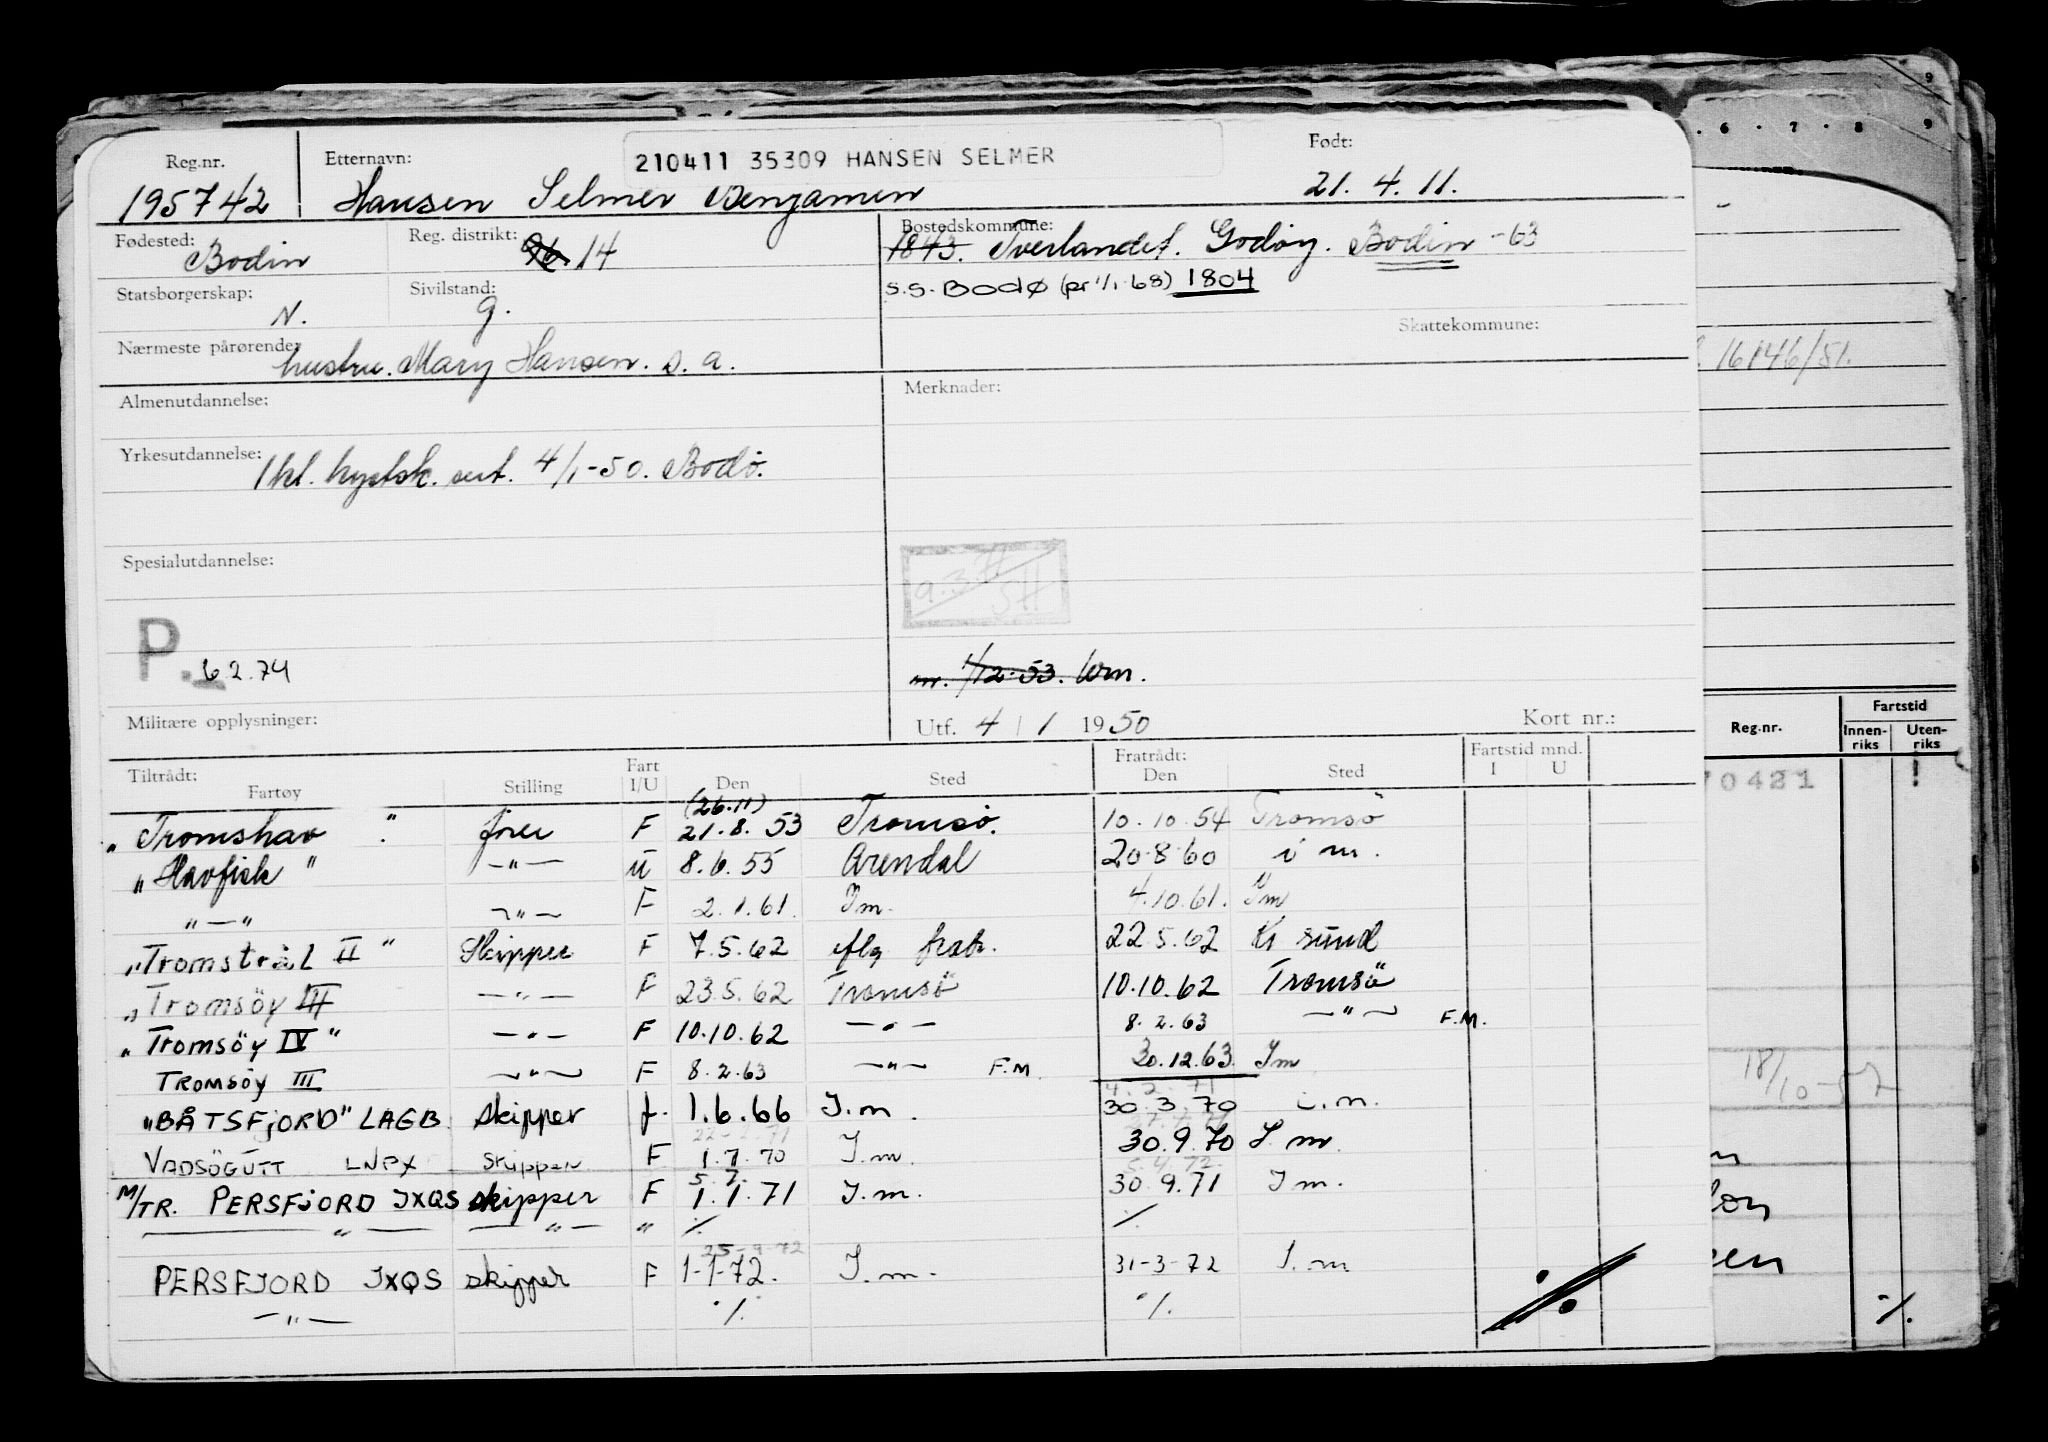 Reg.nr. Etternavn: 210411 35309 HANSEN SELMER Født:
195742 Hansen Selmer Benjamin 21. 4. 11.
Fødested: Reg. distrikt: Bostedskommune:
Bodin 14 1843. Tverlandet. Godøy. Bodin -63
Statsborgerskap: Sivilstand: S.S. BODØ (pr 1/1-68) 1804
N. g.
Skattekommune:
Nærmeste pårørende:
hustru. Mary Hansen. s. a.
Almenutdannelse: Merknader:
Yrkesutdannelse:
1 kl. kystsk. sert. 4/1-50. Bodö.
Spesialutdannelse:
P. 6 2.74
m. 1/12-53.
Militære opplysninger: Utf. 4 / 1 1950 Kort nr.:
Tiltrådt: Fratrådt: Fartstid mnd.
Fartøy Stilling Fart I/U Den Sted Den Sted I U
(26.11)
"Tromshav" förer F 21.8.53 Tromsö. 10.10.54 Tromsö
"Havfisk" -"- U 8.6.55 Arendal 20.8.60 i m.
"-" -"- F 2.1.61. I m. 4.10.61. I m
"Tromstrål II" Skipper F 7.5.62 22.5.62 Kr sund
"Tromsöy III -"- F 23.5.62 Tromsö 10.10.62 Tromsö
"Tromsöy IV" -"- F 10.10.62 -"- 8.2.63 -"- F.M.
TROMSÖY III -"- F 8.2.63 -"- F.M. 30.12.63 I m
4.2.71
"BÅTSFJORD" LAGB skipper f. 1.6.66 I.m. 30.3.70 i.m.
VADSÖGUTT LNPX skipper F 1.7.70 I.m. 30.9.70 I m.
M/TR. PERSFJORD JXQS skipper F 1.1.71 I.m. 30.9.71 I m.
-"- -"- " ./. ./.
25-9-72
PERSFJORD JXQS skipper F 1-1-72. I.m. 31-3-72 I.m
-"- ./. ./. ./.
6 7 8 9
16146/51.
Reg.nr. Fartstid
Innen-riks Uten-riks
70421 !
18/10-57
./.